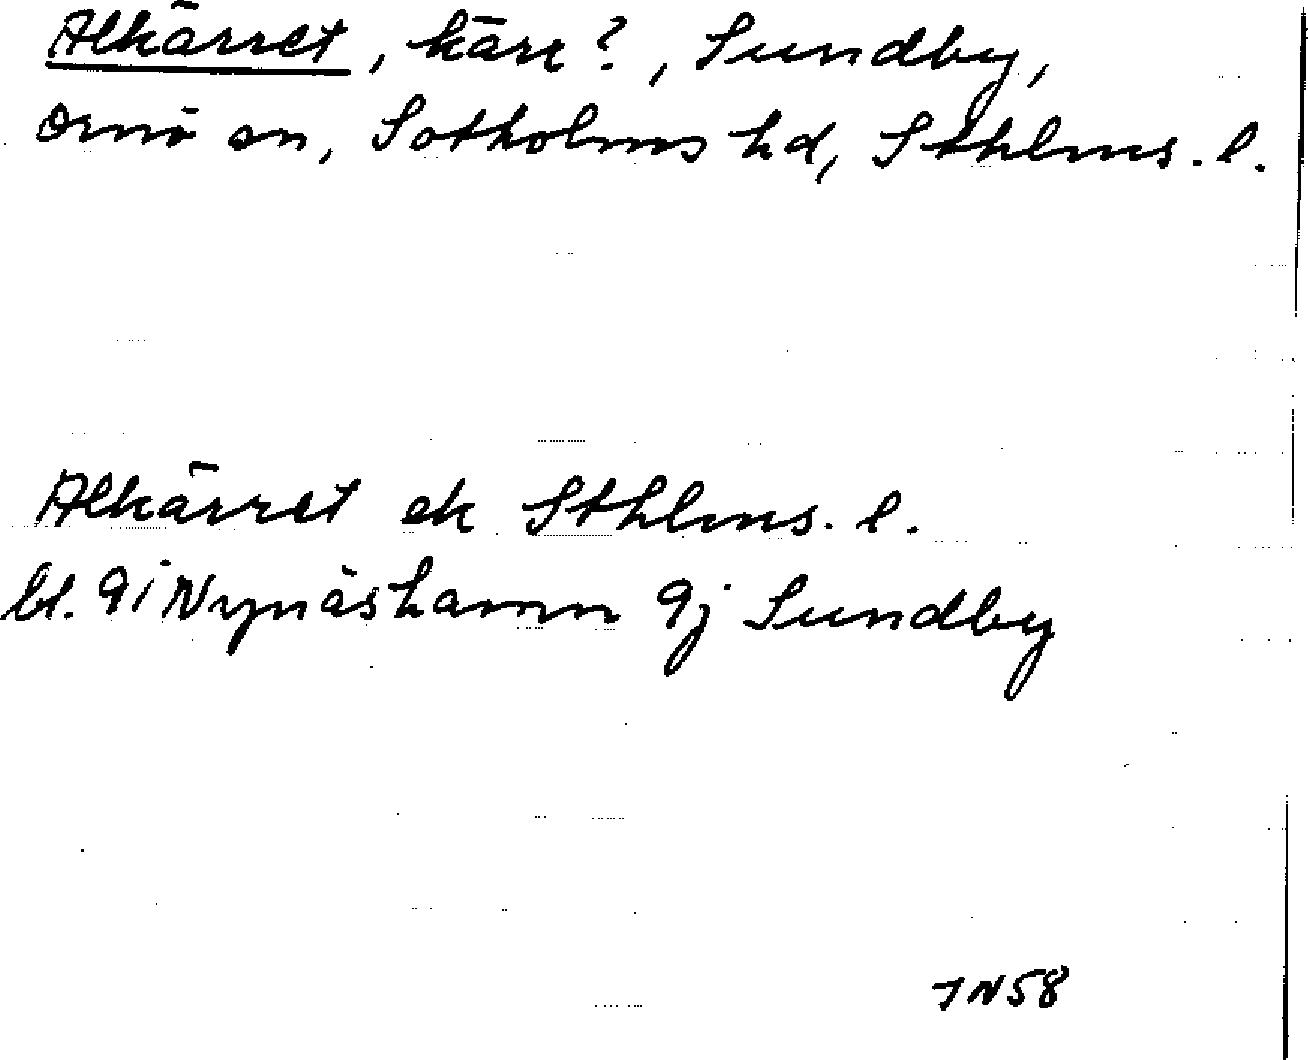 Alkärret, kärr?, Sundby,
Ornö sn, Sotholms hd, Sthlms. l.
Alkärret ek Sthlms. l.
bl. 9i Nynäshamn 9j Sundby
JN58